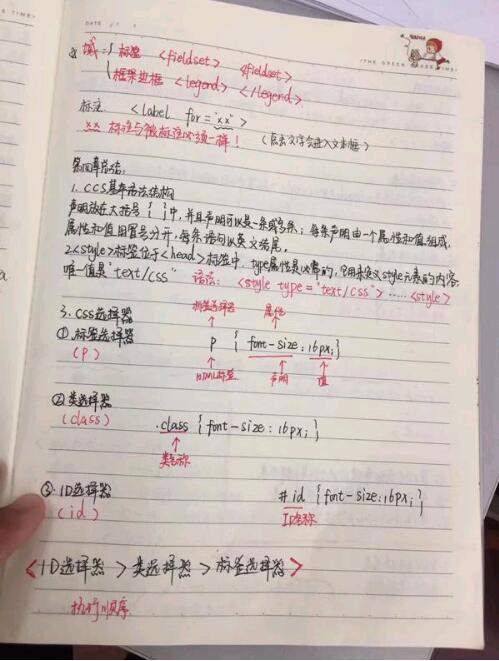 DATE
THE GREEN
域: 标签 <fieldset> <fieldset>
框架边框 <legend> </legend>
标注 <label for="xx">
xx 标注与被标注必须一样! (点击文字会进入文本框)
第四章总结:
1. CCS基本语法结构
声明放在大括号{ }中,并且声明可以是一条或多条;每条声明由一个属性和值组成,
属性和值用冒号分开,每条语句以英文结尾.
2<style>标签位于<head>标签中, type属性是必需的,它用来定义style元素的内容.
唯一值是"text/css" 语法: <style type="text/css"> ..... <style>
3. css选择器
标签选择器 属性
① 标签选择器 p { font-size:16px;}
(p) HTML标签 声明 值
② 类选择器
(class) .class {font-size: 16px;}
类名称
③. ID选择器 #id {font-size:16px;}
(id) ID名称
<ID选择器 > 类选择器 > 标签选择器>
执行顺序.